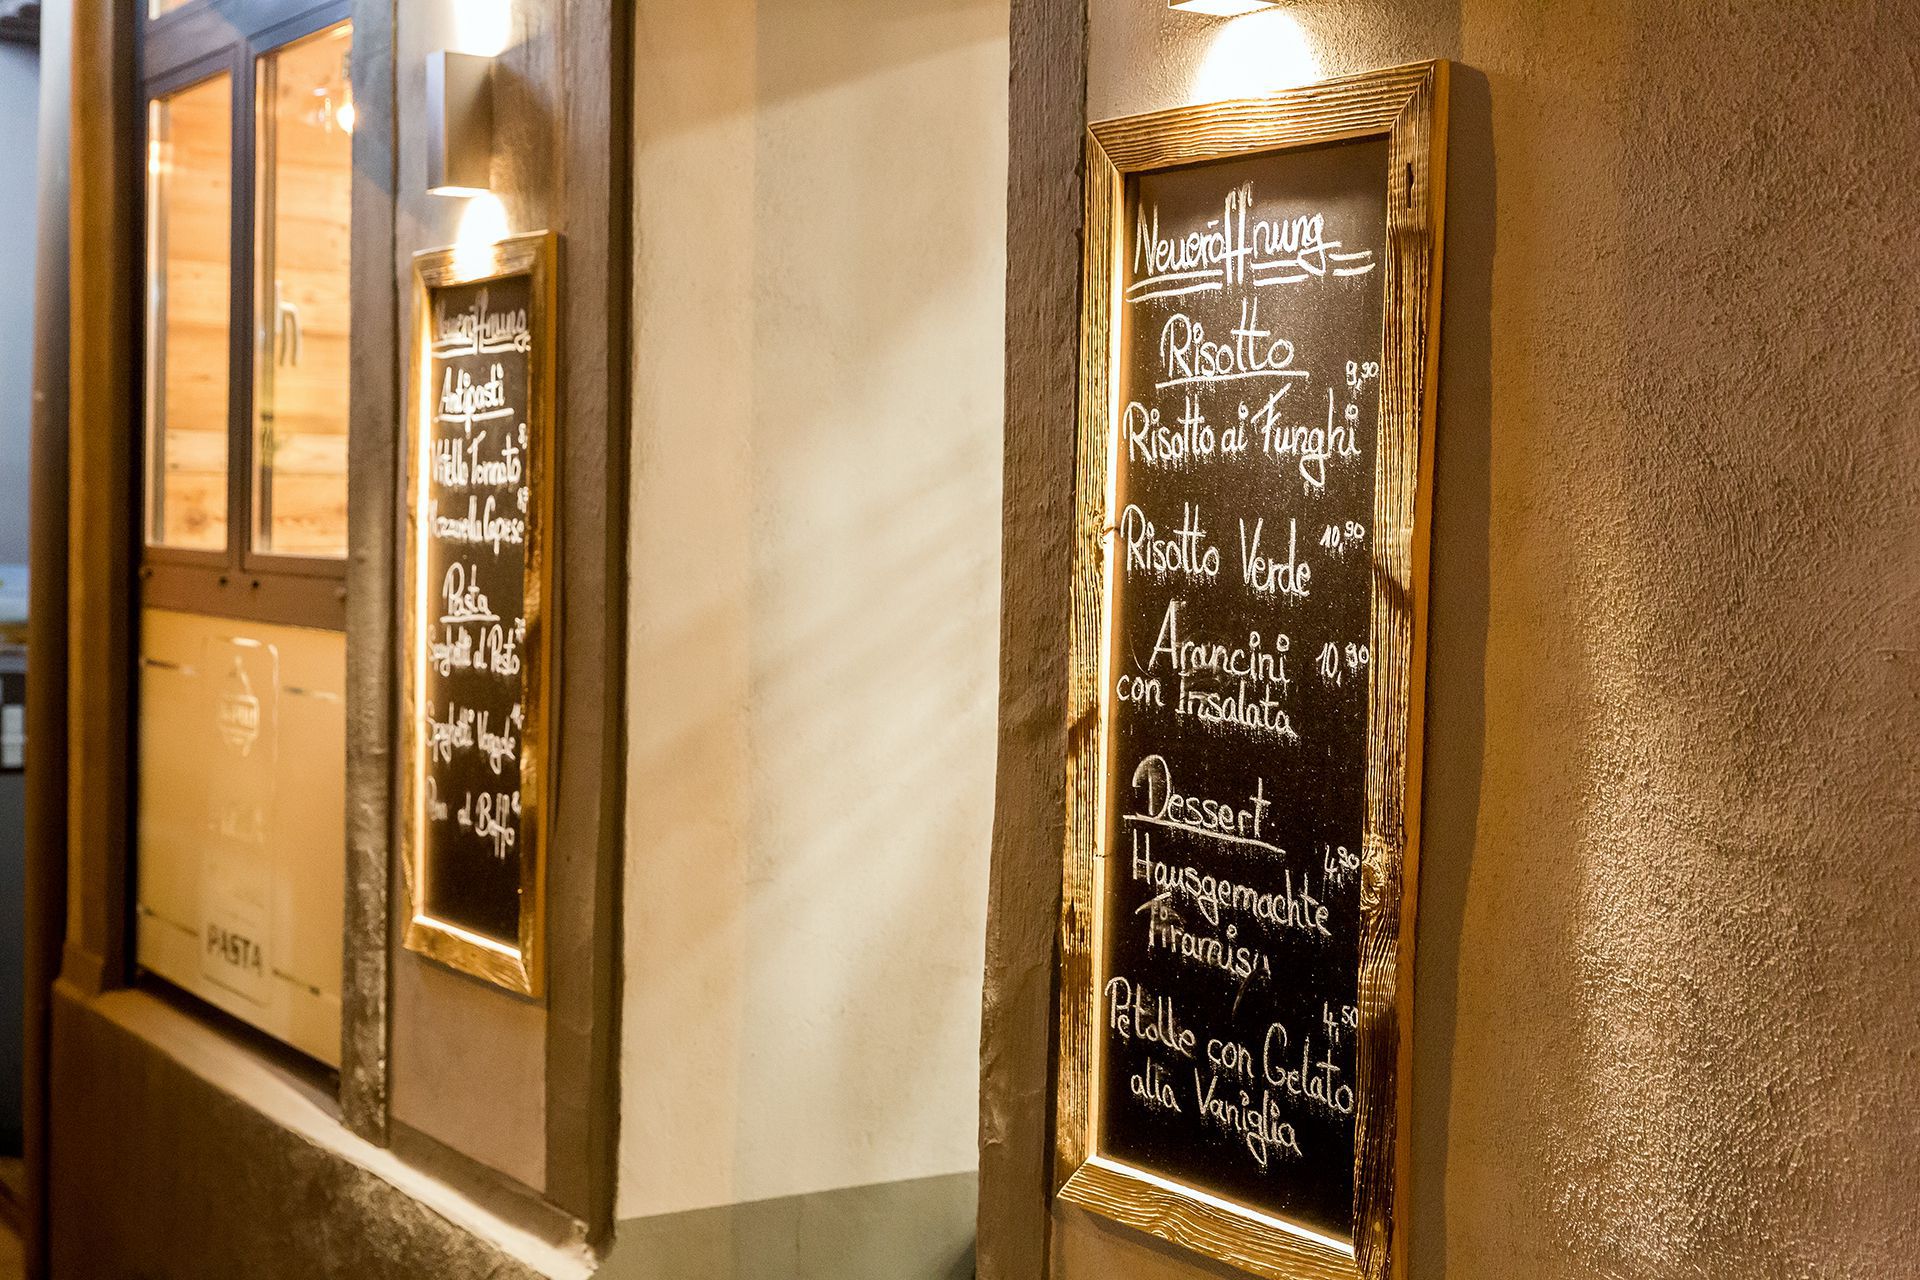 Neueröffnung
Antipasti
Vitello Tonnato
Mozzarella Capese
Pasta
Spaghetti al Pesto
Spaghetti Vongole
al
PASTA
Neueröffnung
Risotto
9,90
Risotto ai Funghi
Risotto Verde 10,90
Arancini 10,90
con Insalata
Dessert
4,90
Hausgemachte
Tiramisu
4,50
Petalle con Gelato
alla Vaniglia